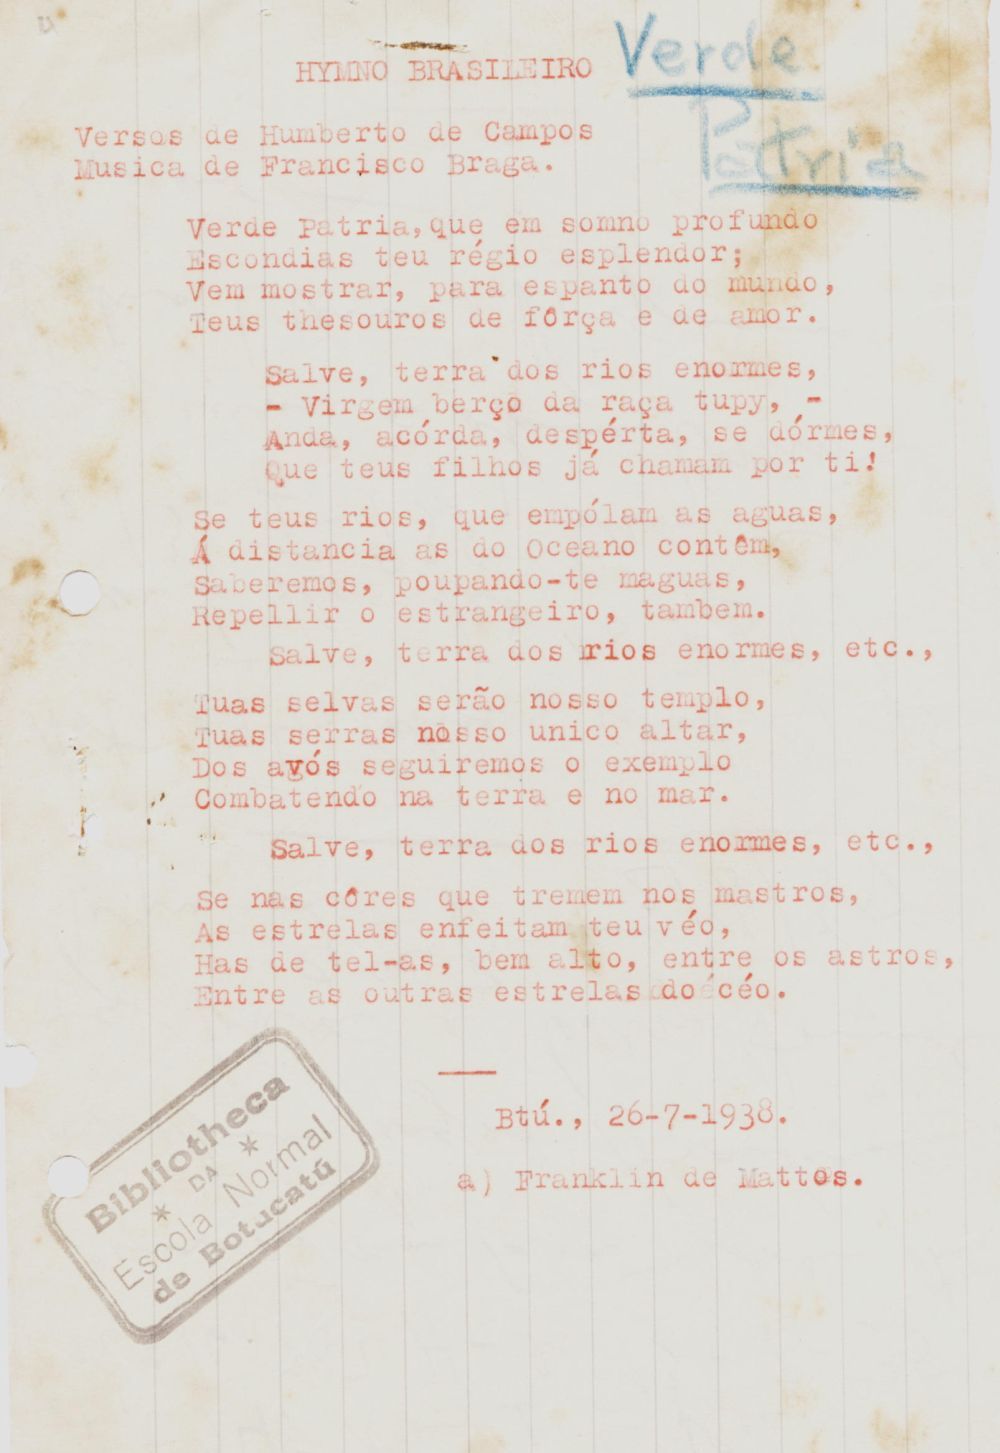 HYMNO BRASILEIRO
Verde
Patria
Versos de Humberto de Campos
Musica de Francisco Braga.
Verde Patria, que em somno profundo
Escondias teu régio esplendor;
Vem mostrar, para espanto do mundo,
Teus thesouros de fôrça e de amor.
Salve, terra dos rios enormes,
- Virgem berço da raça tupy, -
Anda, acórda, despérta, se dórmes,
Que teus filhos já chamam por ti!
Se teus rios, que empólam as aguas,
Á distancia as do Oceano contêm,
Saberemos, poupando-te maguas,
Repellir o estrangeiro, tambem.
Salve, terra dos rios enormes, etc.,
Tuas selvas serão nosso templo,
Tuas serras nosso unico altar,
Dos avós seguiremos o exemplo
Combatendo na terra e no mar.
Salve, terra dos rios enormes, etc.,
Se nas côres que tremem nos mastros,
As estrelas enfeitam teu véo,
Has de tel-as, bem alto, entre os astros,
Entre as outras estrelas do céo.
Btú., 26-7-1938.
a) Franklin de Mattos.
Bibliotheca
DA
* Escola Normal *
de Botucatú